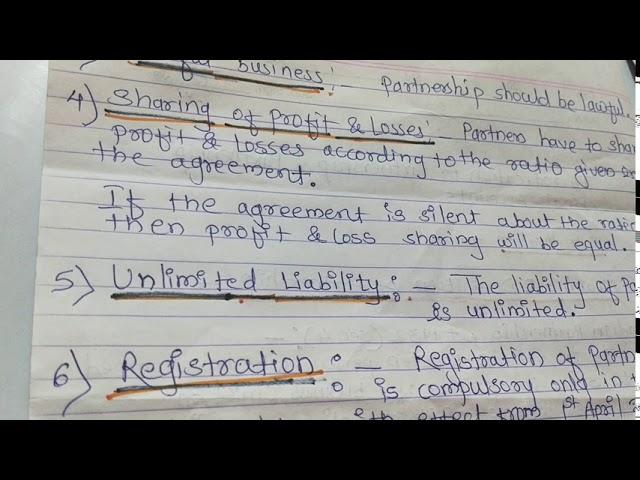 business :- Partnership should be lawful.
4) Sharing of Profit & Losses :- Partners have to
Profit & Losses according to the ratio given
the agreement.
If the agreement is silent about the
then profit & loss sharing will be equal.
5) Unlimited Liability :- The liability of
is unlimited.
6) Registration :- Registration of
is compulsory only in
effect from 1st April